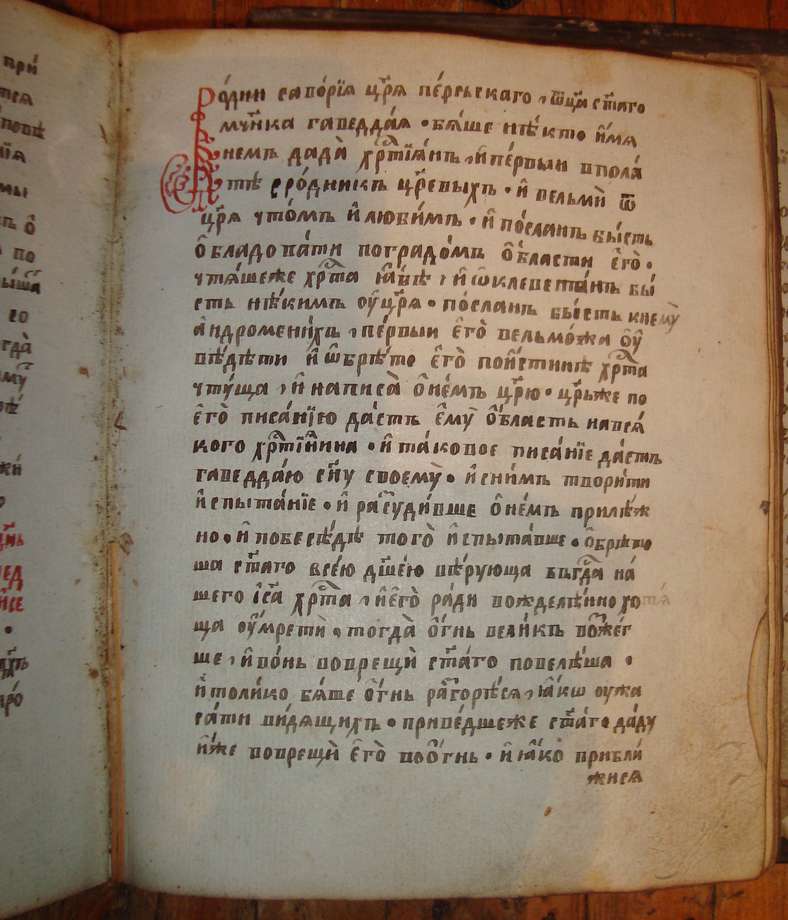 при
тся
повѣ
нїя
мы
ѡ҆
по
со
гда̀
мꙋ̀
рѣ
жи
Родни саво́рїѧ цр҃ѧ пе́рьскаго , ѿц҃а ст҃а́го
мч҃нка гаведда́ѧ · бѧ́ше нѣ́кто и҆́мѧ
немъ дада̀ хрⷭ҇тїа́нъ , и҆ пе́рвыи в пола
тѣ сро́дникъ цр҃е́выхъ · и҆ вельмѝ ѿ
цр҃ѧ что́мъ и҆ люби́мъ · и҆ по́сланъ бы́сть
ѻ҆бладова́ти по градо́мъ ѻ҆́бласти є҆гѡ̀ ·
чтѧ́шеже хрⷭ҇та̀ ꙗ҆́вѣ , и҆ ѡ҆клевета́нъ бы́
сть нѣ́кимъ ᲂу҆ цр҃ѧ · по́сланъ бы́сть к немꙋ̀
а҆ндромени́хъ , пе́рвыи є҆го̀ вельмо́жа ᲂу҆
вѣ́дѣти и҆ ѡ҆брѣ́те є҆го̀ пои́стиннѣ хрⷭ҇та̀
чтꙋ́ща , и҆ написа̀ ѻ҆ не́мъ цр҃ю · цр҃ьже по
є҆го̀ писа́нїю да́стъ є҆мꙋ̀ ѻ҆́бласть на всѧ́
кого хрⷭ҇тїа́нина · и҆ та́ковое писа́нїе да́стъ
гаведда́ю сн҃ꙋ своемꙋ̀ · и҆ с ни́мъ твори́ти
и҆спыта́нїе · и҆ разсꙋди́вше ѻ҆ не́мъ прилѣ́ж
но · и҆ по бесѣ́дѣ того̀ и҆спыта́вше · ѻ҆брѣто
ша ст҃а́го все́ю дш҃е́ю вѣ́рꙋюща в гдⷭ҇а на́
шего і҆с҃а хрⷭ҇та̀ , и҆ є҆го̀ ра́ди вожделѣ́нно хотѧ́
ща ᲂу҆мре́ти · тогда̀ ѻ҆́гнь вели́къ вожже́г
ше , и҆ во́нь воврещѝ ст҃а́го повелѣ́ша ·
и҆ толи́ко бѧ́ше ѻ҆́гнь разгорѣ́сѧ , ꙗ҆́кѡ ᲂужа
сати ви́дѧщихъ · приве́дшеже ст҃а́го да́дꙋ
и҆́же воврещѝ є҆го̀ во ѻ҆́гнь · и҆ ꙗ҆́ко прибли́
жисѧ